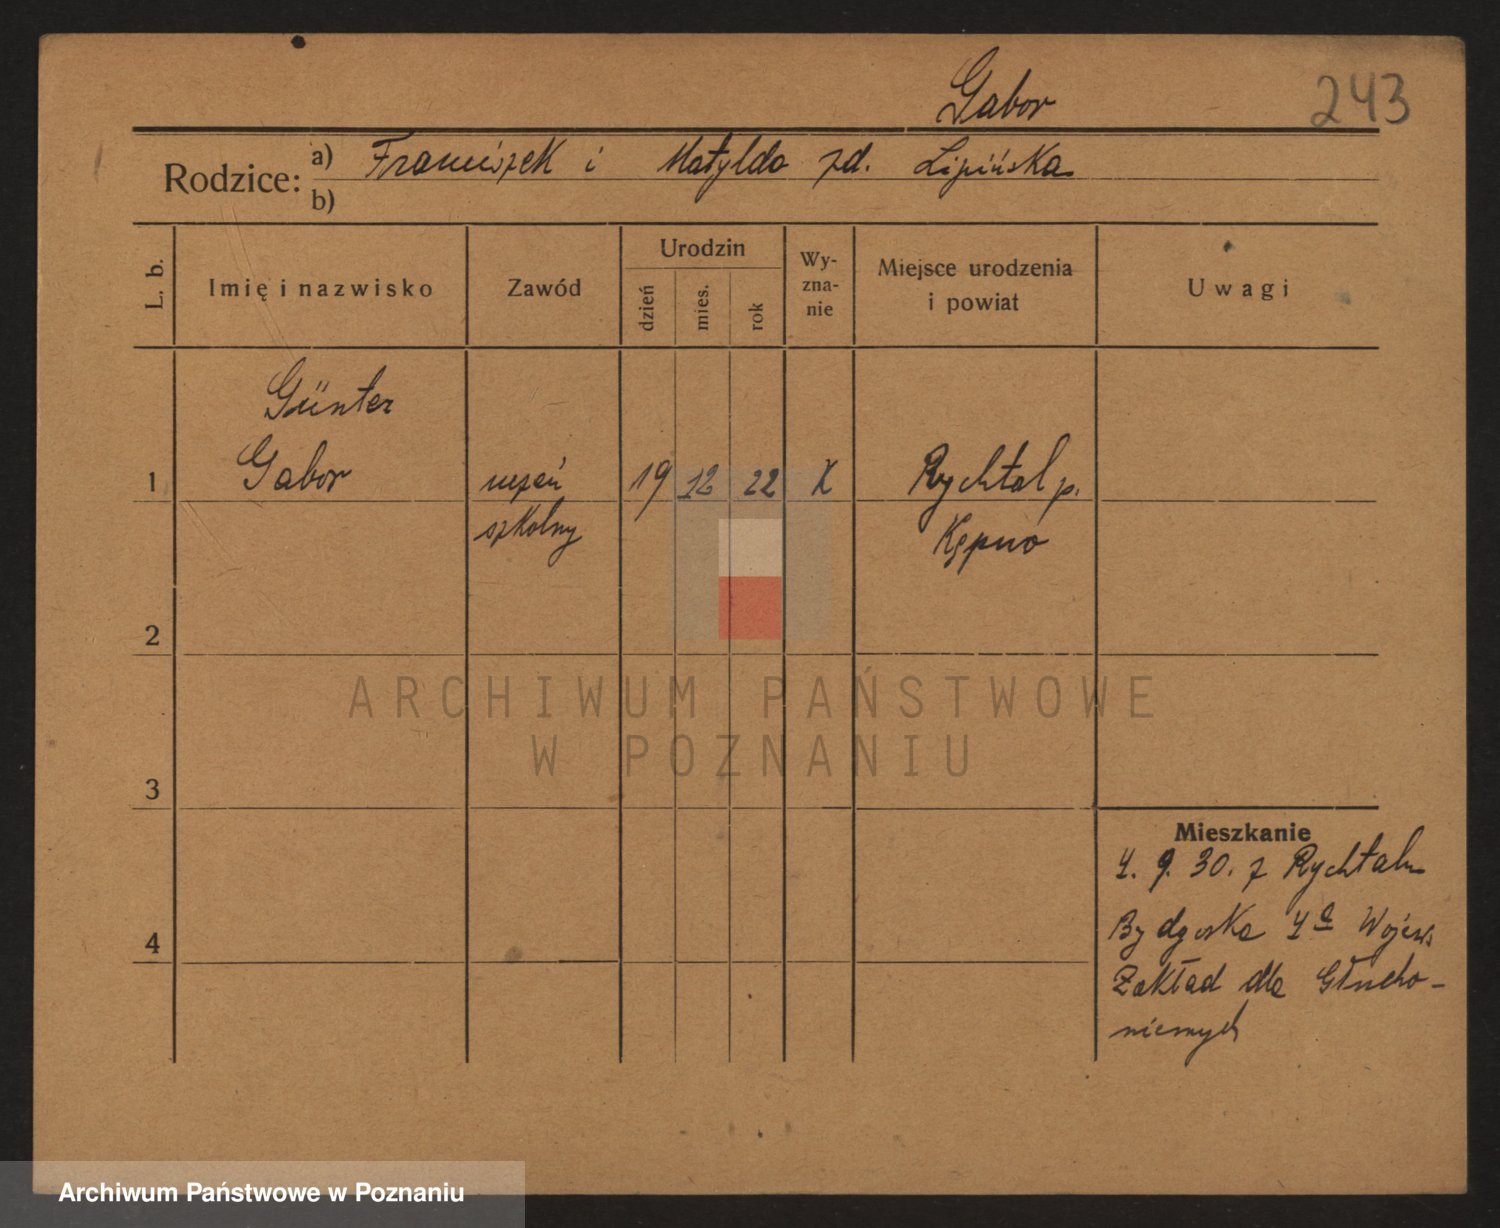 Gabor 243
Rodzice: a) Franciszek i Matylda zd. Lipińska
b)
L. b. Imię i nazwisko Zawód Urodzin dzień mies. rok Wy-zna-nie Miejsce urodzenia i powiat Uwagi
Günter
1 Gabor uczeń 19 12 22 K Rychtal p.
szkolny Kępno
2
ARCHIWUM PAŃSTWOWE
W POZNANIU
3
Mieszkanie
4. 9. 30. z Rychtalu
Bydgoska 4a Wojew.
4
Zakład dla Głucho-
niemych
Archiwum Państwowe w Poznaniu